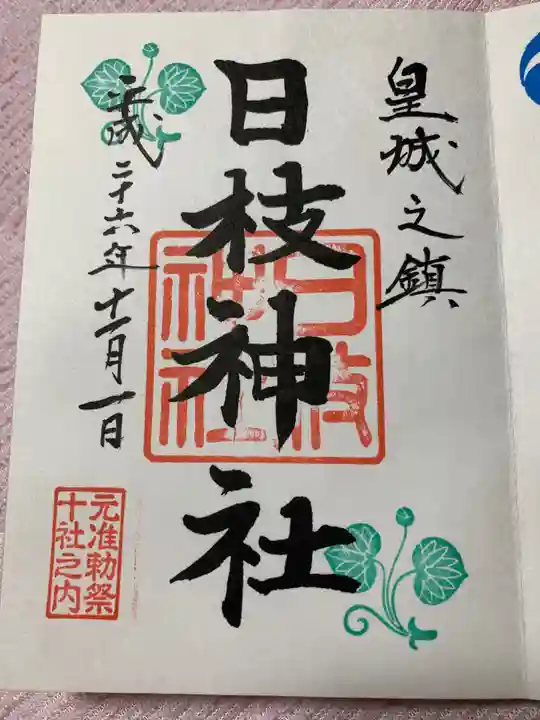 皇城之鎮
日枝神社
日枝
神社
平成二十六年十一月一日
元准勅祭
十社之内